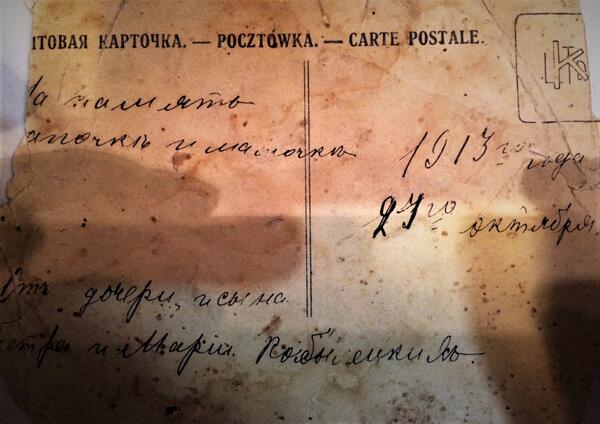 ЧТОВАЯ КАРТОЧКА. — POCZTÓWKA. — CARTE POSTALE.
На память
апочкѣ и мамочкѣ
1913 го года
27 го октября
Отъ дочери, и сына
етра и Маріи. Кобылецкихъ.